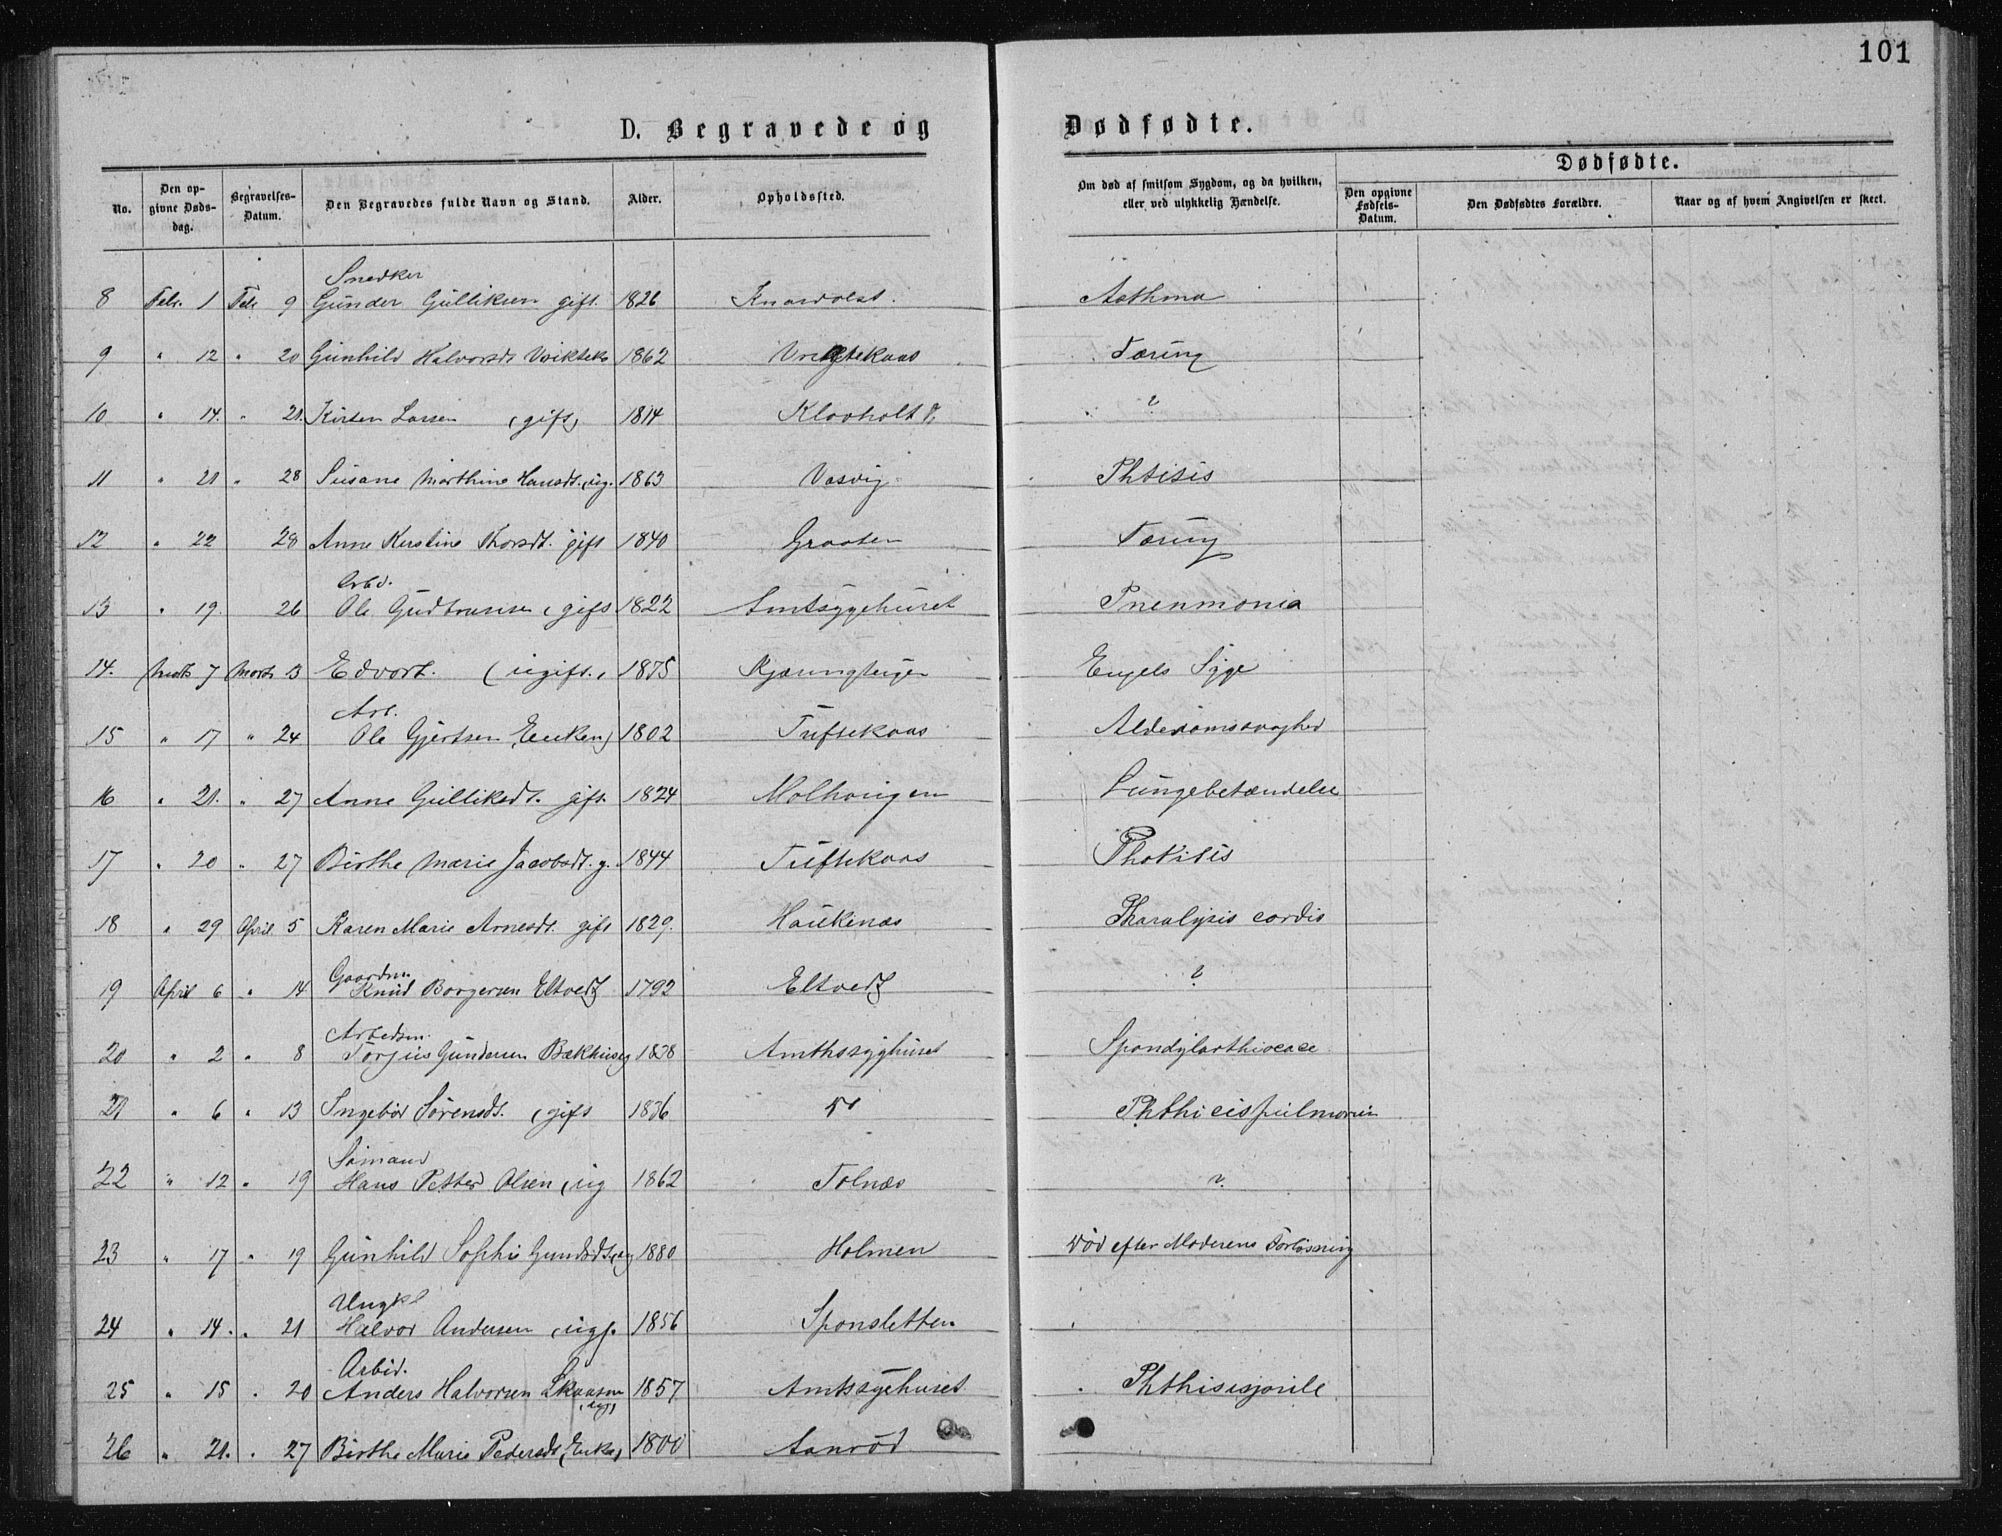 101
D. Begravede og Dødfødte.
No. Den opgivne Dødsdag. Begravelses-Datum. Den Begravedes fulde Navn og Stand. Alder. Opholdssted. Om død af smitsom Sygdom, og da hvilken, eller ved ulykkelig Hændelse. Dødfødte. Den opgivne Fødsels-Datum. Den Dødfødtes Forældre. Naar og af hvem Angivelsen er skeet.
Snedker
8 Febr. 1 Feb 9 Gunder Gulliksen gift. 1826 Asthma
9 " 12 " 20 Gunhild Halvorsdt 1862 Tæring
10 " 14. " 21. Kirsten Larsen (gift) 1814 Klovholt ?
11 " 21 " 28 Susane Marthine Hansdt. ug. 1863 Vasvig Phtisis
12 " 22 28 Anne Kirstine Thorsdt. gift 1840 Graaten Tæring
Arbd.
13 " 19. 26 Ole (gift 1822 Amtsygehuset Pnenmonia
14. Marts 7 Marts 13 Edvart. (ugift., 1875 Engels Syge
Arb.
15 " 17 " 24 Ole Gjertsen Enkem) 1802 Tuftekaas Alderdomssvaghed
16 " 21. " 27 Anne Gulliksdt. gift. 1824 Lungebetændelse
17 " 20 " 27 Birthe Marie Jacobsdt. g. 1844 Tuftekaas
18 " 29 April 5 Karen Marie Arnesdt. gift 1829. Haukenæs Pharalysis cordis
Gaardm
19 April 6 " 14 Knud Borgersen Eltvedt 1792 Eltvedt ?
Arbedsm.
20 " 2 " 8 Torjus Gundersen 1838 Amthssyghuset Spondylarthrocace
21 " 6 " 13 Ingebør Sørensdt. (gift 1836
Sømand
22 " 12 " 19 Hans Petter Olsen (ug 1862 Tolnæs ?
23 " 17 " 19 Gunhild Sophie 1880 Holmen Død efter Moderens Forløsning
Ungkl
24 " 14. " 21 Halvor Andersen (ugf. 1856 Sponsletten
Arbid.
25 " 15 " 20 Anders Halvorsen (ug) 1857. Amtssygehuset
26 " 21. " 27 Birthe Marie Pedersdt (Enke) 1800 Aanrød